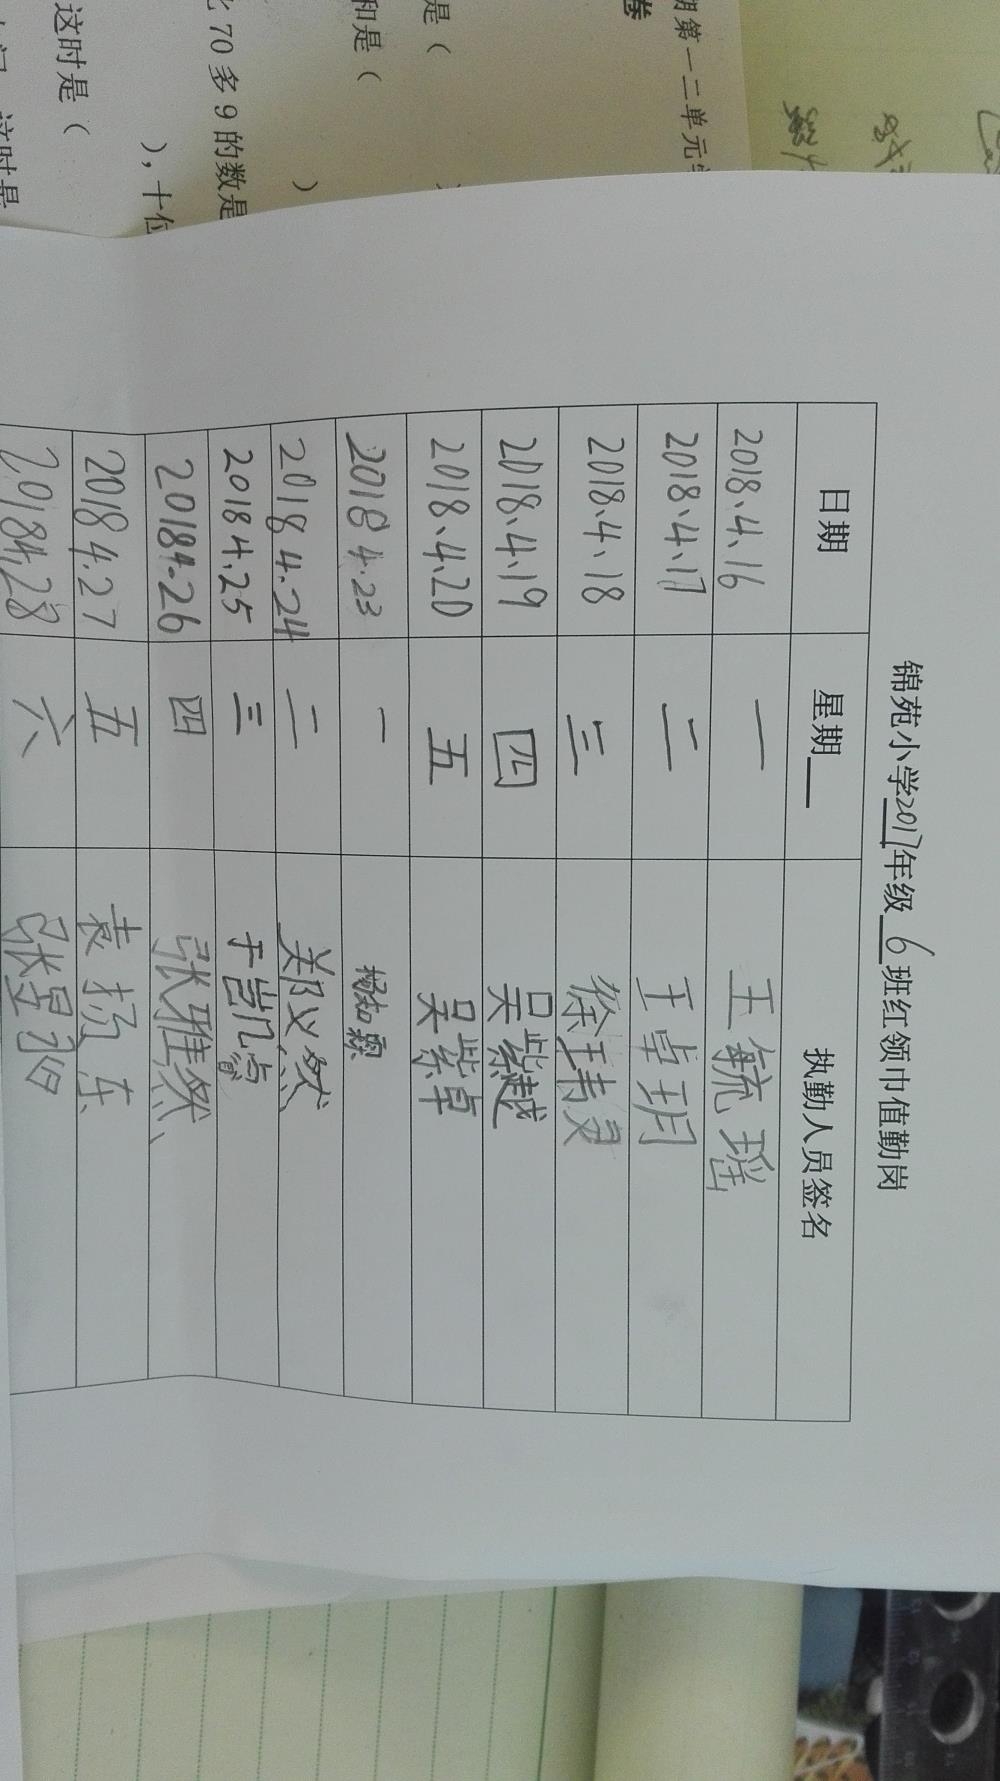 锦苑小学2017年级6班红领巾值勤岗
日期 星期__ 执勤人员签名
2018.4.16 一 王毓瑶
2018.4.17 二 王卓玥
2018.4.18 三 徐玮灵
2018.4.19 四 吴紫越
2018.4.20 五 吴紫卓
2018 4.23 一 杨知霖
2018 4.24 二 郑义然
2018 4.25 三 于凯
2018 4.26 四 张雅然
2018 4.27 五 袁扬东
2018 4.28 六 张昱
期第一二单元
卷
是（
和是（
70多9的数是
）
），十位
这时是（
这时是